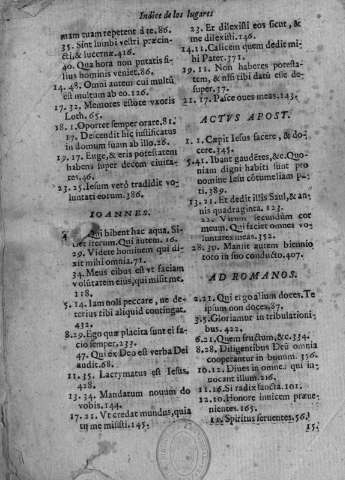 Indice de los lugares
mam tuam repetent à te.86.
35. Sint lumbi vestri præcin-
cti, & lucernæ.416.
40. Qua hora non putatis fi-
lius hominis veniet.86.
14.48. Omni autem cui multū
est multam ab eo.126.
17.32. Memores estote vxoris
Loth.65.
18.1. Oportet semper orare.81.
17. Descendit hic iustificatus
in domum suam ab illo.26.
19.17. Euge, & eris potestatem
habens super decem ciuita-
tes.46.
23.25. Iesum verò tradidit vo-
luntati eorum.386.
IOANNES.
Qui bibent hac aqua. Si-
tiet iterum. Qui autem.16.
29. Videte hominem qui di-
xit mihi omnia.71.
34. Meus cibus est vt faciam
voluntatem eius, qui misit me.
118.
5.14. Iam noli peccare, ne de-
terius tibi aliquid contingat.
432.
8.29. Ego quæ placita sunt ei fa-
cio semper.233.
47. Qui ex Deo est verba Dei
audit.68.
11.35. Lacrymatus est Iesus.
428.
13.34. Mandatum nouum do
vobis.144.
17.21. Vt credat mundus, quia
tu me misisti.145.
23. Et dilexisti eos sicut, &
me dilexisti.146.
14.11. Calicem quem dedit mi-
hi Pater.371.
19.11. Non haberes potesta-
tem, & nisi tibi datū esset de-
super.37.
21.17. Pasce oues meas.143.
ACTVS APOST.
1.1. Cœpit Iesus facere, & do-
cere.345.
5.41. Ibant gaudētes, &c. Quo-
niam digni habiti sunt pro
nomine Iesu cōtumeliam pa-
ti.
13.21. Et dedit illis Saul, & an-
nis quadraginta.123.
22. Virum secundum cor
meum. Qui faciet omnes vo-
luntates meas.352.
28.30. Mansit autem biennio
toto in suo conducto.407.
AD ROMANOS.
2.21. Qui ergo alium doces. Te
ipsum non doces.87.
Gloriamur in tribulationi-
bus.422.
6.21. Quem fructum, &c.334.
8.28. Diligentibus Deū omnia
cooperantur in bonum.356.
10.12. Diues in omnes qui in-
uocant illum.216.
11.16. Si radix sancta.101.
12.10. Honore inuicem præue-
nientes.165.
11. Spiritus feruentes.56.
15.